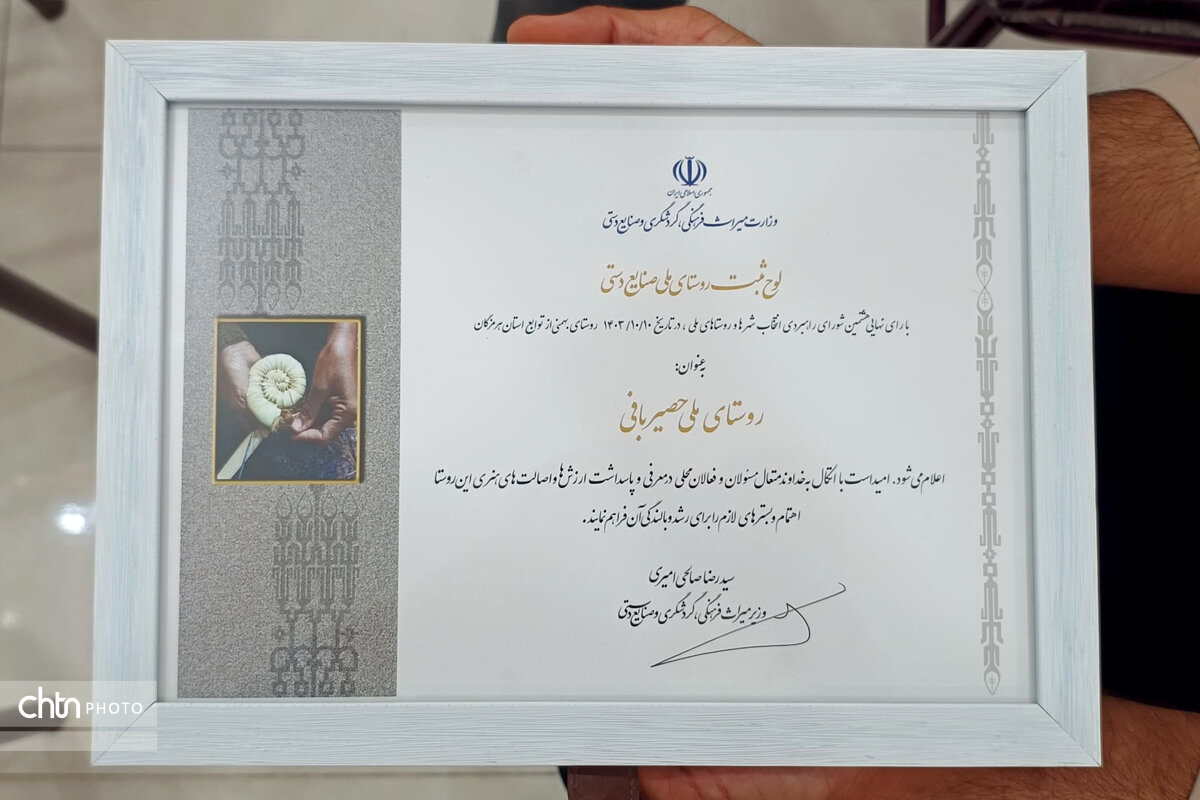 جمهوری اسلامی ایران
وزارت میراث فرهنگی، گردشگری و صنایع دستی
لوح ثبت روستای ملی صنایع دستی
با رای نهایی هشتمین شورای راهبردی انتخاب شهرها و روستاهای ملی، در تاریخ ۱۴۰۳/۱۰/۱۰ روستای بهمنی از توابع استان هرمزگان
به عنوان:
روستای ملی حصیربافی
اعلام می‌شود. امید است با اتکال به خداوند متعال مسئولان و فعالان محلی در معرفی و پاسداشت ارزش‌ها و اصالت‌های هنری این روستا
اهتمام و بسترهای لازم را برای رشد و بالندگی آن فراهم نمایند.
سید رضا صالحی امیری
وزیر میراث فرهنگی، گردشگری و صنایع دستی
chtn PHOTO